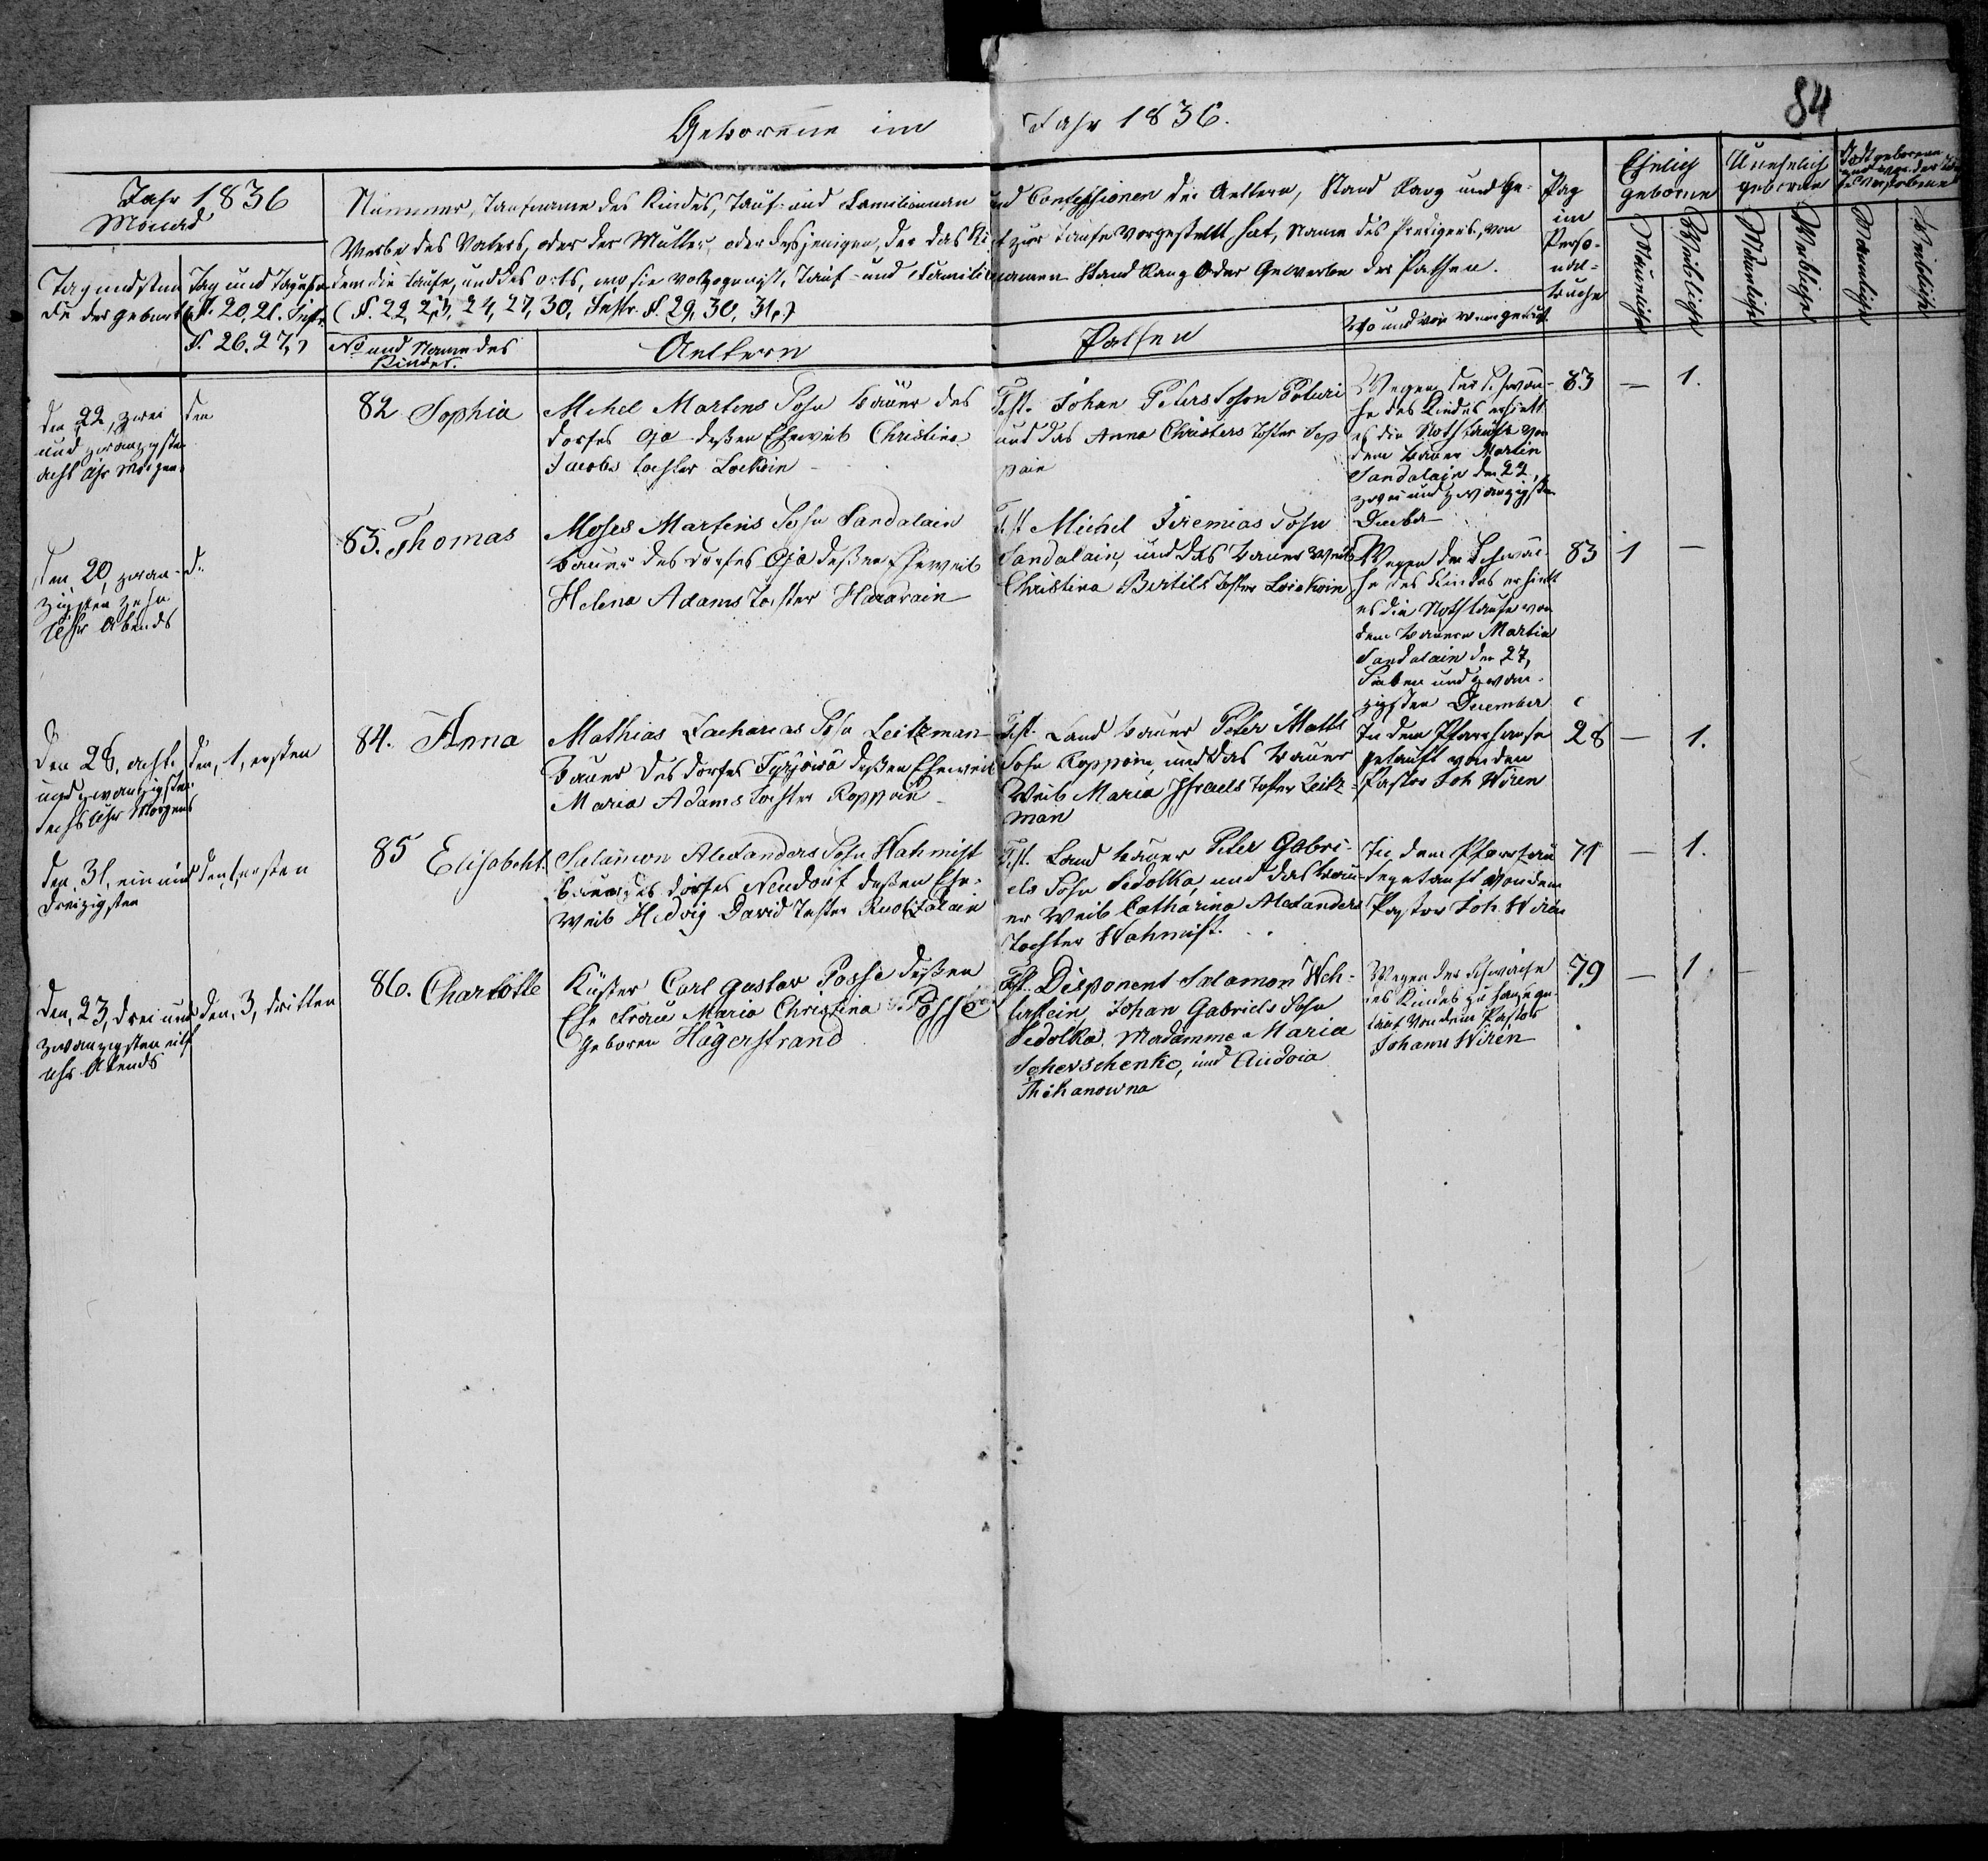 84
Geborene im Jahr 1836.
Jahr 1836
Monad
Tag und Stun
de der Geburt
Tag und Taufe
§. 20, 21. Instr.
§. 26. 27.)
Nummer, Taufname des Kindes, Tauf- und Familiennamen und Confessionen der Aeltern, Stand Rang und Ge-
werbe des Vaters, oder der Mutter, oder desjenigen, der das Kind zur Taufe vorgestellt hat, Name des Predigers, von
dem die Taufe, und des Orts, wo sie vollzogen ist, Tauf- und Familiennamen Stand Rang oder Gewerbe der Pathen.
(§. 22, 23, 24, 27, 30, Instr. §. 29, 30, 31.)
No und Name des
Kindes.
Aeltern
Pathen
Wo und von wem getauft
Pag
im
Perso-
nal-
buche
Ehelich
geborne
Unehelich
geborne
Todtgeborene
Männliche
Weibliche
Männliche
Weibliche
Männliche
Weibliche
den 22, zwei
und zwanzigsten
acht Uhr Morgen
den
82 Sophia
Mihel Martens Sohn Bauer des
Dorfes Oja deßen Eheweib Christina
Jacobs Tochter Lockoin
Test. Johan Peters Sohn Poturi
und das Anna Christers Tochter Sep
pain
Wegen der Schwä-
che des Kindes erhielt
es die Nothtaufe von
dem Bauer Martin
Sandalain den 22,
zwei und zwanzigsten
Decbr
83 — 1.
den 20, zwan-
zigsten zehn
Uhr Abends
d.
83. Thomas
Moses Martens Sohn Sandalain
Bauer des Dorfes Oja deßen Eheweib
Helena Adams Tochter Hararain
Test Michel Jeremias Sohn
Sandalain, und das Bauer Weib
Christina Bertils Tochter Loickoin
Wegen der Schwä-
che des Kindes erhielt
es die Nothtaufe von
dem Bauern Martin
Sandalain den 27,
Sieben und zwan-
zigsten December
83 1 —
den 28, acht
und zwanzigsten
sechs Uhr Morgens
den, 1, ersten
84. Anna
Mathias Zacharias Sohn Leitzman
Bauer des Dorfes deßen Eheweib
Maria Adams Tochter Roppoin
Test. Land Bauer Peter Matts
Sohn Roppoin, und das Bauer
Weib Maria Israels Tochter Leitz-
man
In dem Pfarrhause
getauft von dem
Pastor Joh Wiren
28 — 1.
den, 31, ein und
dreizigsten
den, 1, ersten
85 Elisabeht.
Salamon Alexanders Sohn Wahmist
Bauer des Dorfes Neudorf deßen Ehe-
weib Hedvig David Tochter Ruotzalain
Test. Land Bauer Peter Gabri-
els Sohn Sedolka und das Bau-
er Weib Catharina Alexanders
Tochter Wahmist.
In dem Pfarrhau
se getauft von dem
Pastor Joh. Wirén
71 — 1.
den, 23, drei und
zwanzigsten eilf
Uhr Abends
den, 3, dritten
86. Charlotte
Küster Carl Gustav Posse deßen
Ehe Frau Maria Christina Posse
geboren Hägerstrand
Test. Disponent Salamon Weh-
lestein, Johan Gabriels Sohn
Sedolka, Madamme Maria
Scherschenko, und Audoia
Thikanowna
Wegen der Schwäche
des Kindes zu Hause ge-
tauft von dem Pastor
Johann Wirén
79 — 1 —